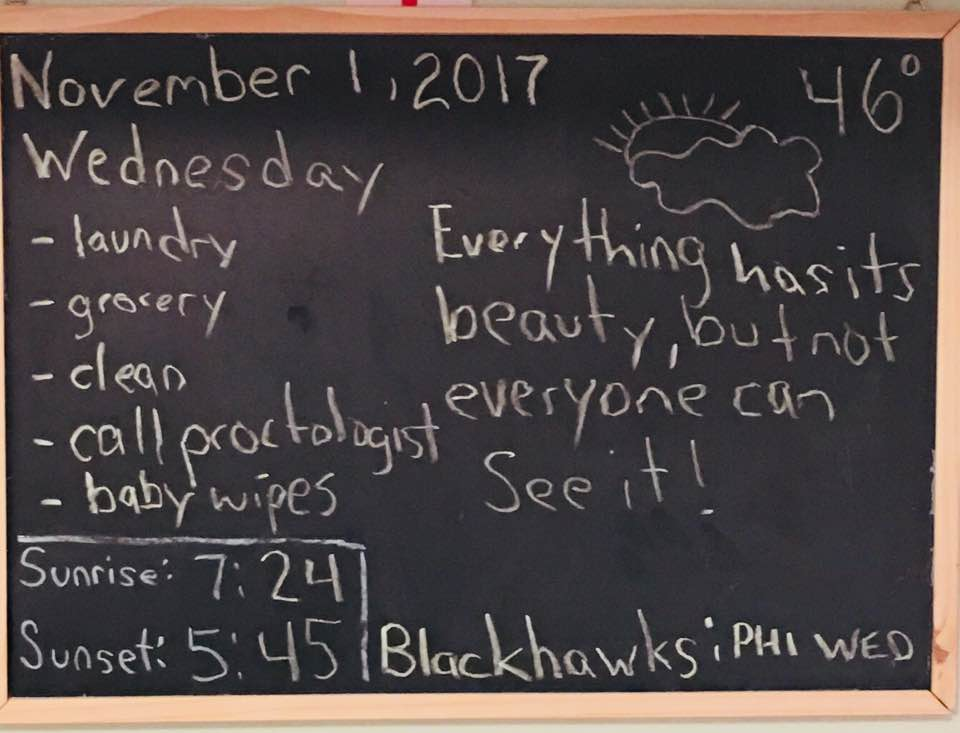 November 1, 2017
46°
Wednesday
- laundry
- grocery
- clean
- call proctologist
- baby wipes
Everything has its
beauty, but not
everyone can
See it!
Sunrise: 7:24
Sunset: 5:45
Blackhawks: PHI WED